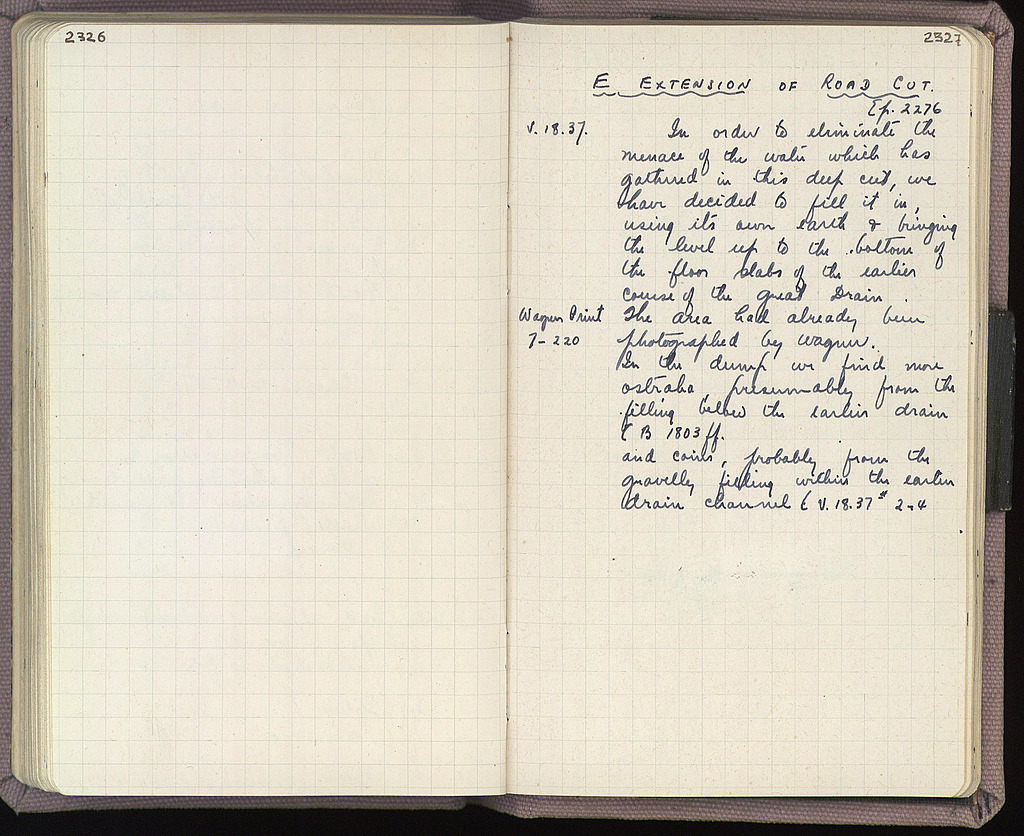 2326
2327
E EXTENSION OF ROAD CUT.
(p. 2276
V. 18.37.
In order to eliminate the
menace of the water which has
gathered in this deep cut, we
have decided to fill it in,
using its own earth & bringing
the level up to the bottom of
the floor slabs of the earlier
course of the great Drain.
Wagner Print
7-220
The area had already been
photographed by Wagner.
In the dump we find more
ostraka, presumably from the
filling below the earlier drain
( B 1803 ff.
and coins, probably from the
gravelly filling within the earlier
drain channel ( V. 18.37 # 2-4